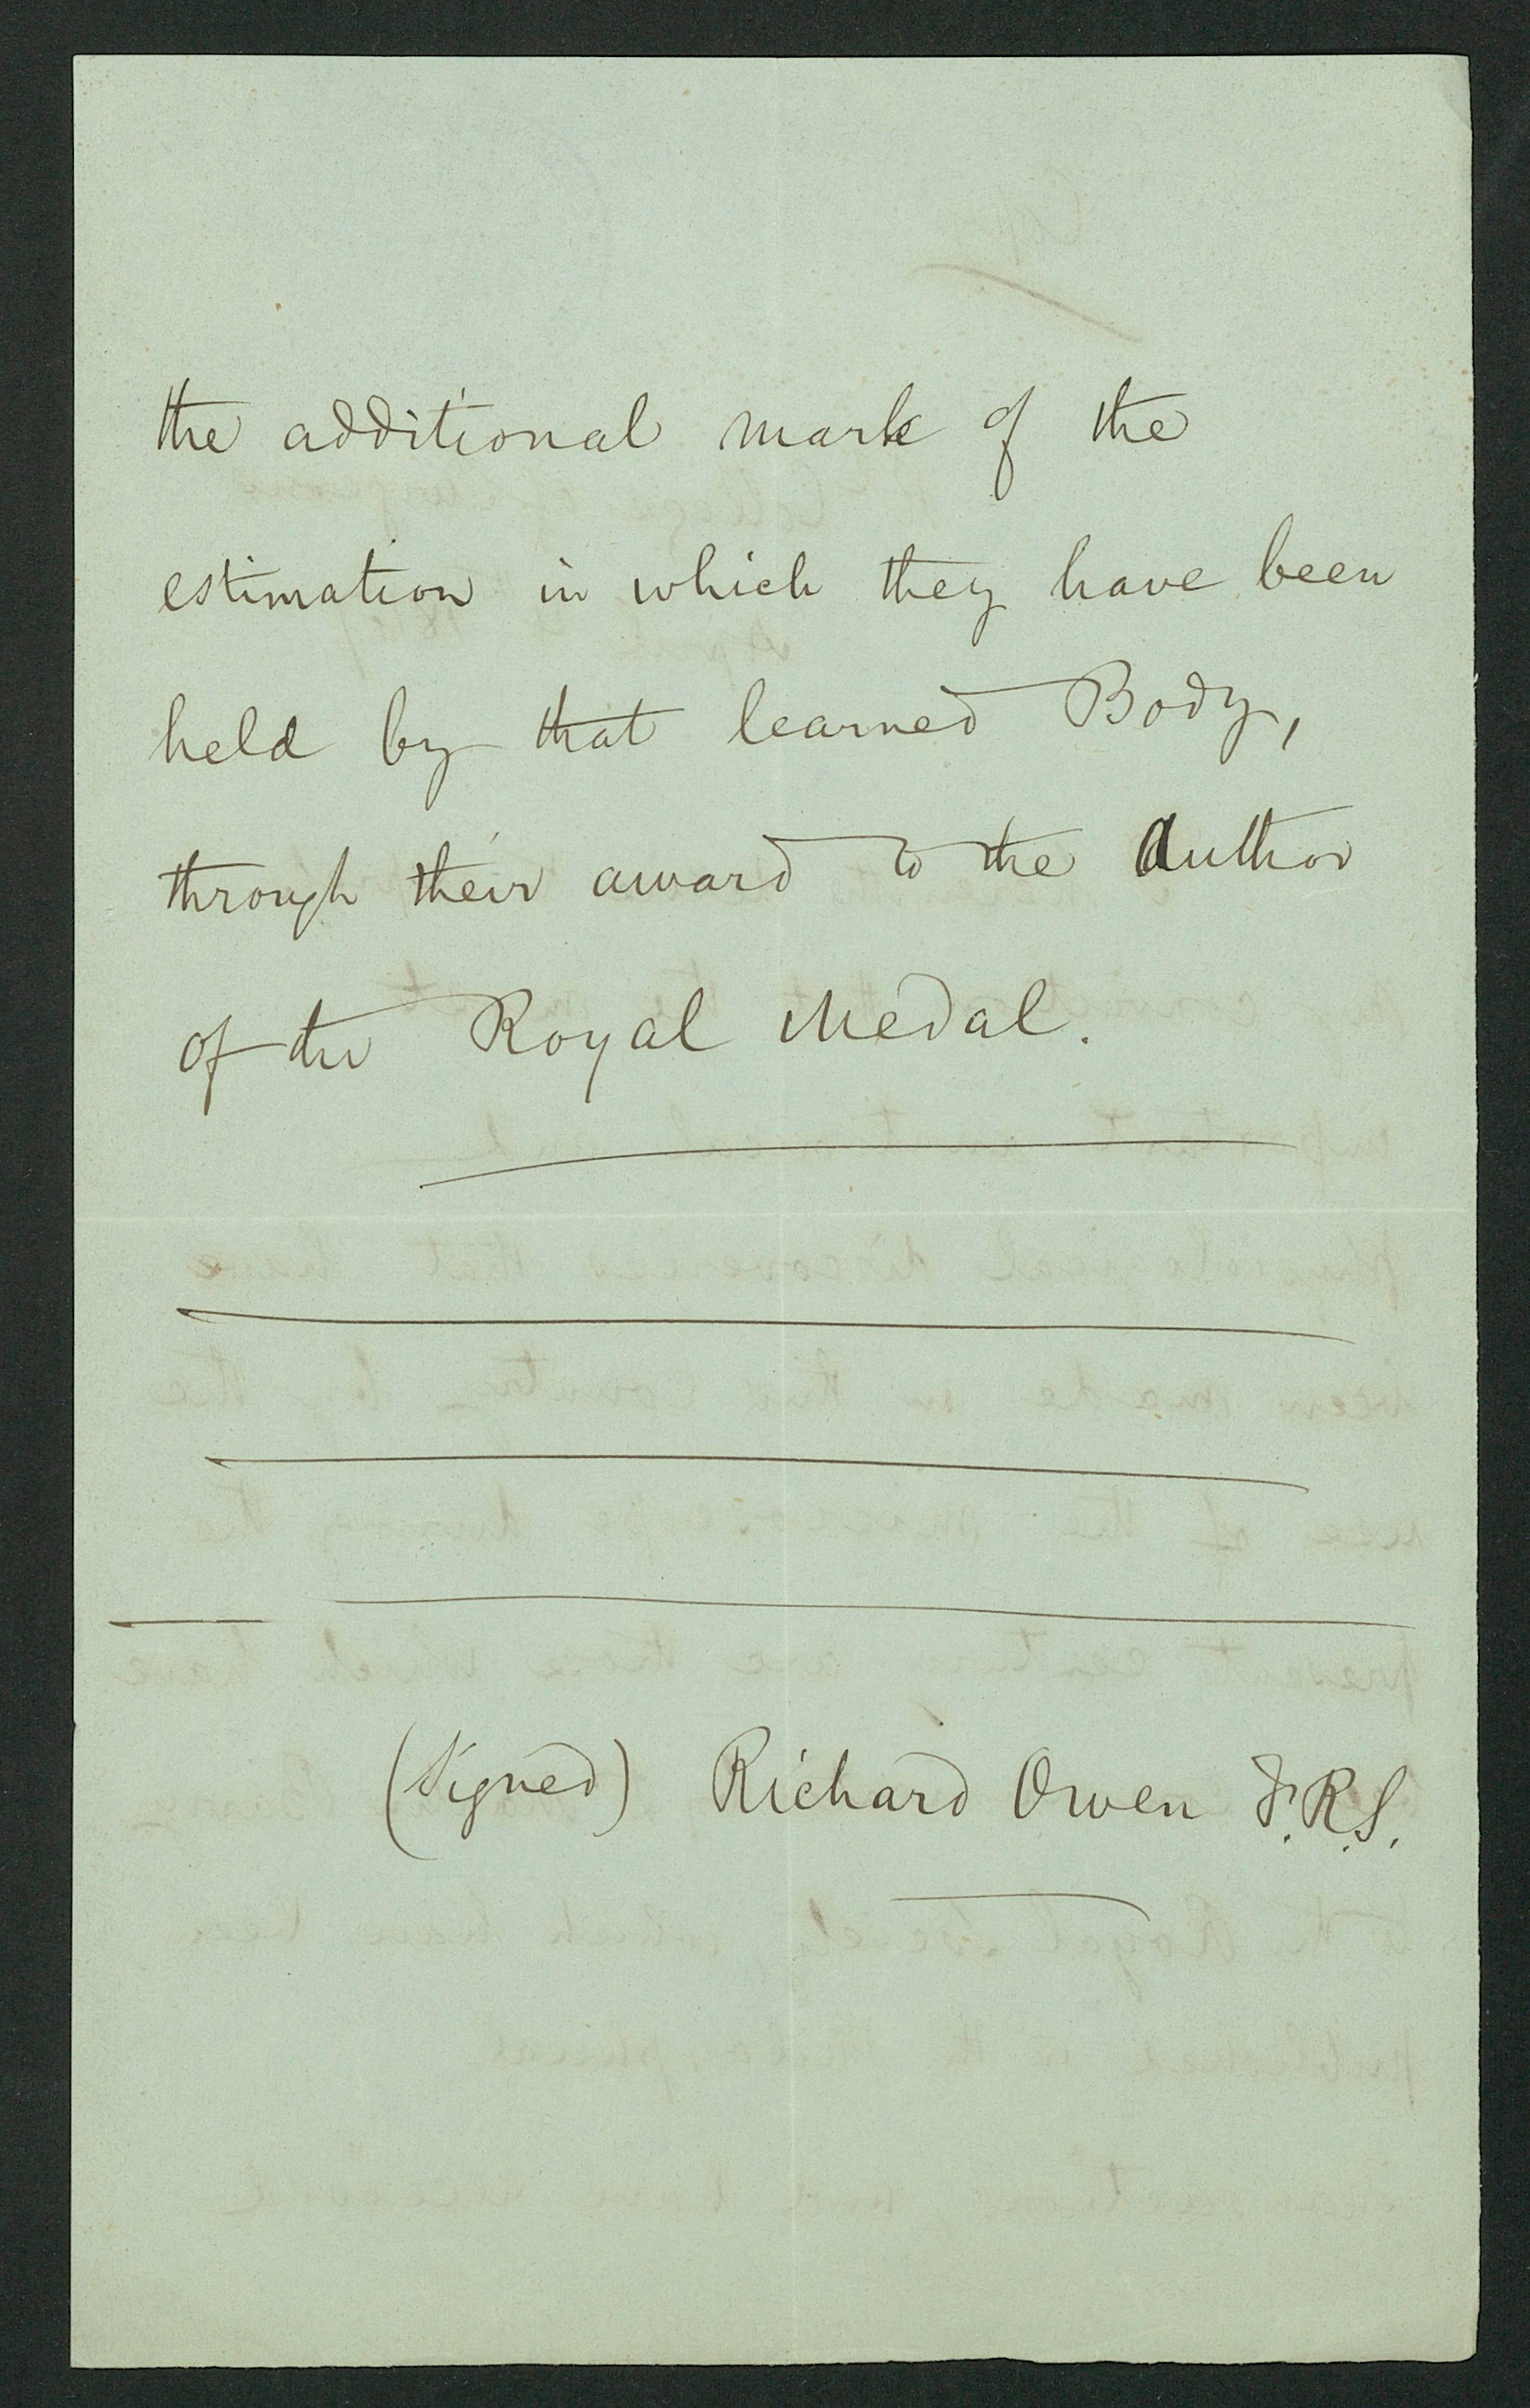 the additional mark of the
estimation in which they have been
held by that learned Body,
through their award to the Author
of the Royal Medal.
(Signed) Richard Owen F.R.S.